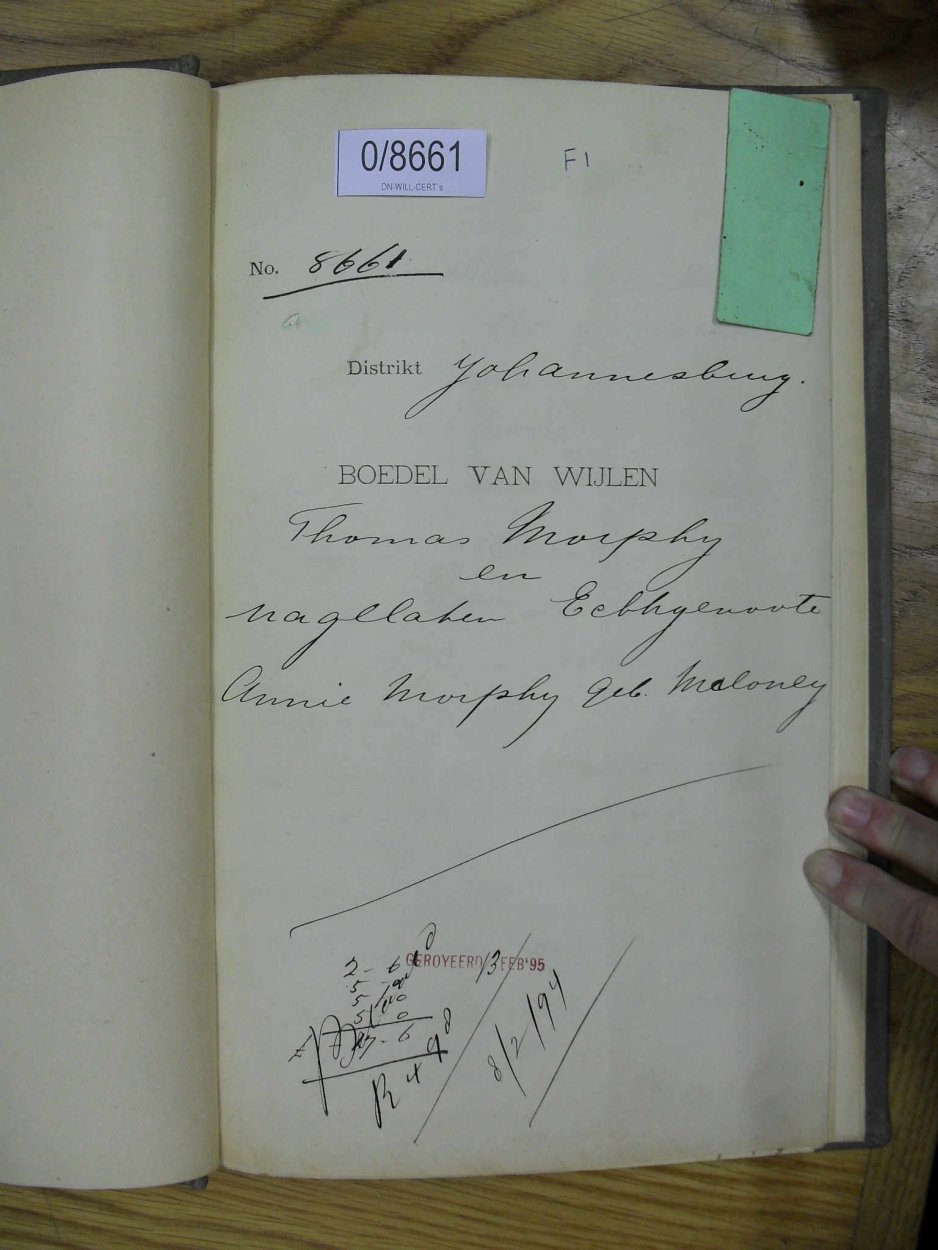 0/8661
DN-WILL-CERT's
F1
No. 8661
Distrikt Johannesburg.
BOEDEL VAN WIJLEN
Thomas Morphy
en
nagellaten Echtgenoote
Annie Morphy geb. Meloney
GEROYEERD 13 FEB '95
2 - 6
8/2/94